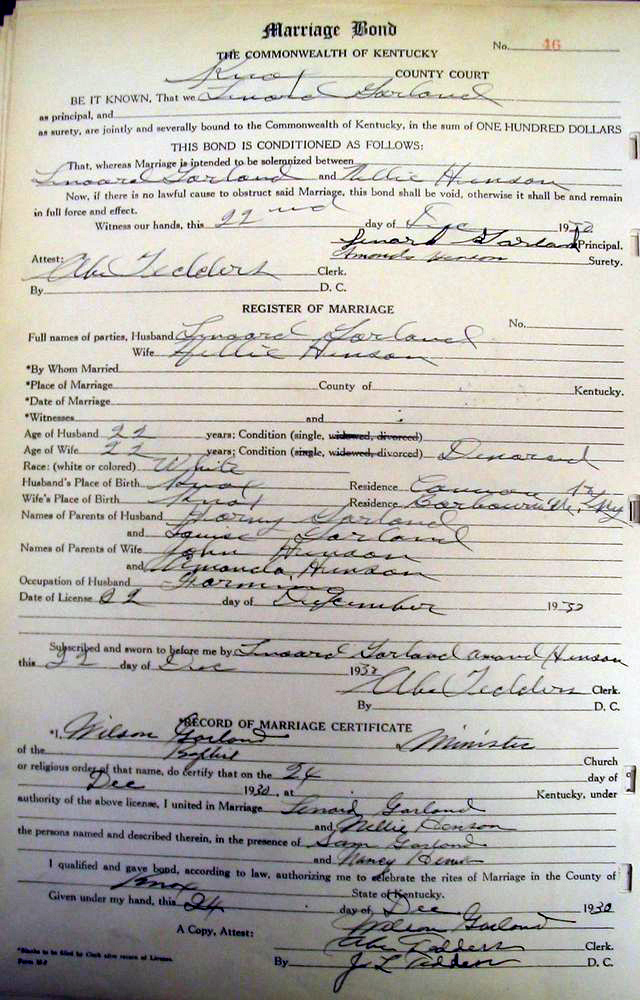 Marriage Bond
No. 46
THE COMMONWEALTH OF KENTUCKY
Knox COUNTY COURT
BE IT KNOWN, That we Lenoard Garland
as principal, and
as surety, are jointly and severally bound to the Commonwealth of Kentucky, in the sum of ONE HUNDRED DOLLARS
THIS BOND IS CONDITIONED AS FOLLOWS:
That, whereas Marriage is intended to be solemnized between
Lenoard Garland and Nellie Henson
Now, if there is no lawful cause to obstruct said Marriage, this bond shall be void, otherwise it shall be and remain
in full force and effect.
Witness our hands, this 22nd day of Dec 1930
Lenord Garland Principal.
Amonda Henson Surety.
Attest:
Abe Tedders Clerk.
By D. C.
REGISTER OF MARRIAGE
No.
Full names of parties, Husband Lenoard Garland
Wife Nellie Henson
*By Whom Married
*Place of Marriage County of Kentucky.
*Date of Marriage
*Witnesses and
Age of Husband 22 years; Condition (single, widowed, divorced)
Age of Wife 22 years; Condition (single, widowed, divorced)
Race: (white or colored) White
Husband's Place of Birth Knox Residence Cannon Ky
Wife's Place of Birth Knox Residence Barbourville, Ky
Names of Parents of Husband Garland
and Louise Garland
Names of Parents of Wife John Henson
and Amanda Henson
Occupation of Husband Farming
Date of License 22 day of December 1930
Subscribed and sworn to before me by Lenoard Garland Henson
this 22 day of Dec 1930
Abe Tedders Clerk.
By D. C.
*RECORD OF MARRIAGE CERTIFICATE
*I, Wilson Garland Minister
of the Baptist Church
or religious order of that name, do certify that on the 24 day of
Dec 1930, at Kentucky, under
authority of the above license, I united in Marriage Lenord Garland
and Nellie Henson
the persons named and described therein, in the presence of Sam Garland
and Nancy
I qualified and gave bond, according to law, authorizing me to celebrate the rites of Marriage in the County of
Knox State of Kentucky.
Given under my hand, this 24 day of Dec 1930
Wilson Garland
A Copy, Attest: Abe Tedders Clerk.
By J L Tedders D. C.